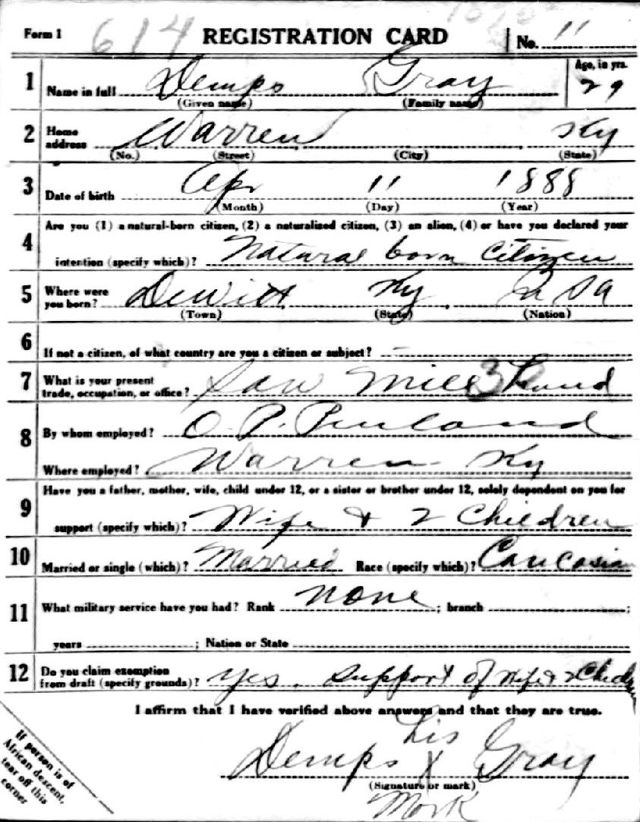 Form 1 614 REGISTRATION CARD No. 11
1 Name in full Demps Gray Age, in yrs. 29
(Given name) (Family name)
2 Home address Warren Ky
(No.) (Street) (City) (State)
3 Date of birth Apr 11 1888
(Month) (Day) (Year)
4 Are you (1) a natural-born citizen, (2) a naturalized citizen, (3) an alien, (4) or have you declared your
intention (specify which)? Natural born Citizen
5 Where were you born? Dewitt Ky USA
(Town) (State) (Nation)
6 If not a citizen, of what country are you a citizen or subject?
7 What is your present trade, occupation, or office? Saw Mill Hand
8 By whom employed? O. P.
Where employed? Warren Ky
9 Have you a father, mother, wife, child under 12, or a sister or brother under 12, solely dependent on you for
support (specify which)? Wife & 2 Children
10 Married or single (which)? Married Race (specify which)? Caucasian
11 What military service have you had? Rank none ; branch ;
years ; Nation or State
12 Do you claim exemption from draft (specify grounds)? yes. Support of Wife & 2 Child
I affirm that I have verified above answers and that they are true.
his
Demps X Gray
(Signature or mark)
Mark
If person is of
African descent,
tear off this
corner